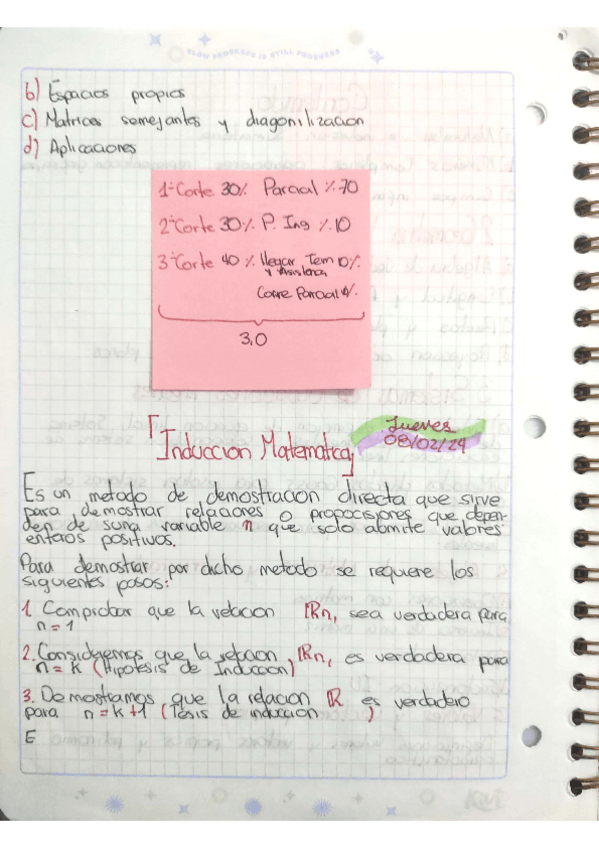 SLOW PROGRESS IS STILL PROGRESS
b) Espacios propios
c) Matrices semejantes y diagonilización
d) Aplicaciones
1ºCorte 30% Parcial %70
2ºCorte 30% P. Ing %10
3ºCorte 40% llegar Tem 10%
y Asistencia
Corre Parcial %
3.0
Jueves
08/02/24
「Induccion Matematica」
Es un metodo de demostracion directa que sirve
para demostrar relaciones o propocisiones que depen-
den de suna variable n que solo abmite valores
entaros positivos.
Para demostrar por dicho metodo se requere los
siguientes pasos:
1. Comprobar que la relacion Rn, sea verdadera para
n = 1
2. Consideremos que la relacion Rn, es verdadera para
n = k (Hipotesis de Induccion)
3. Demostramos que la relacion R es verdadero
para n = k + 1 (Tesis de induccion )
E